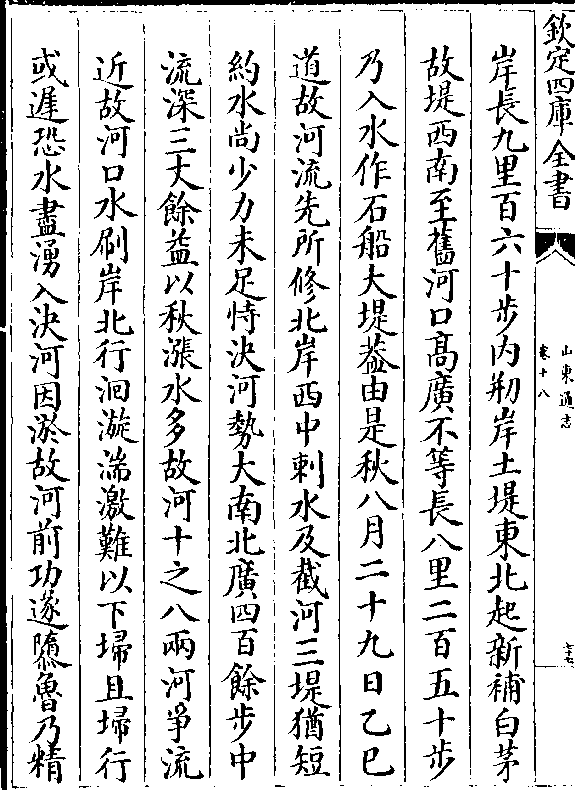 欽定四庫全書
山東通志
卷十八
岸長九里百六十步内刱岸土堤東北起新補白茅
故堤西南至舊河口髙廣不等長八里二百五十步
乃入水作石船大堤葢由是秋八月二十九日乙巳
道故河流先所修北岸西中刺水及截河三堤猶短
約水尚少力未足恃決河勢大南北廣四百餘步中
流深三丈餘益以秋漲水多故河十之八兩河爭流
近故河口水刷岸北行洄漩湍激難以下埽且埽行
或遲恐水盡湧入決河因淤故河前功遂隳魯乃精